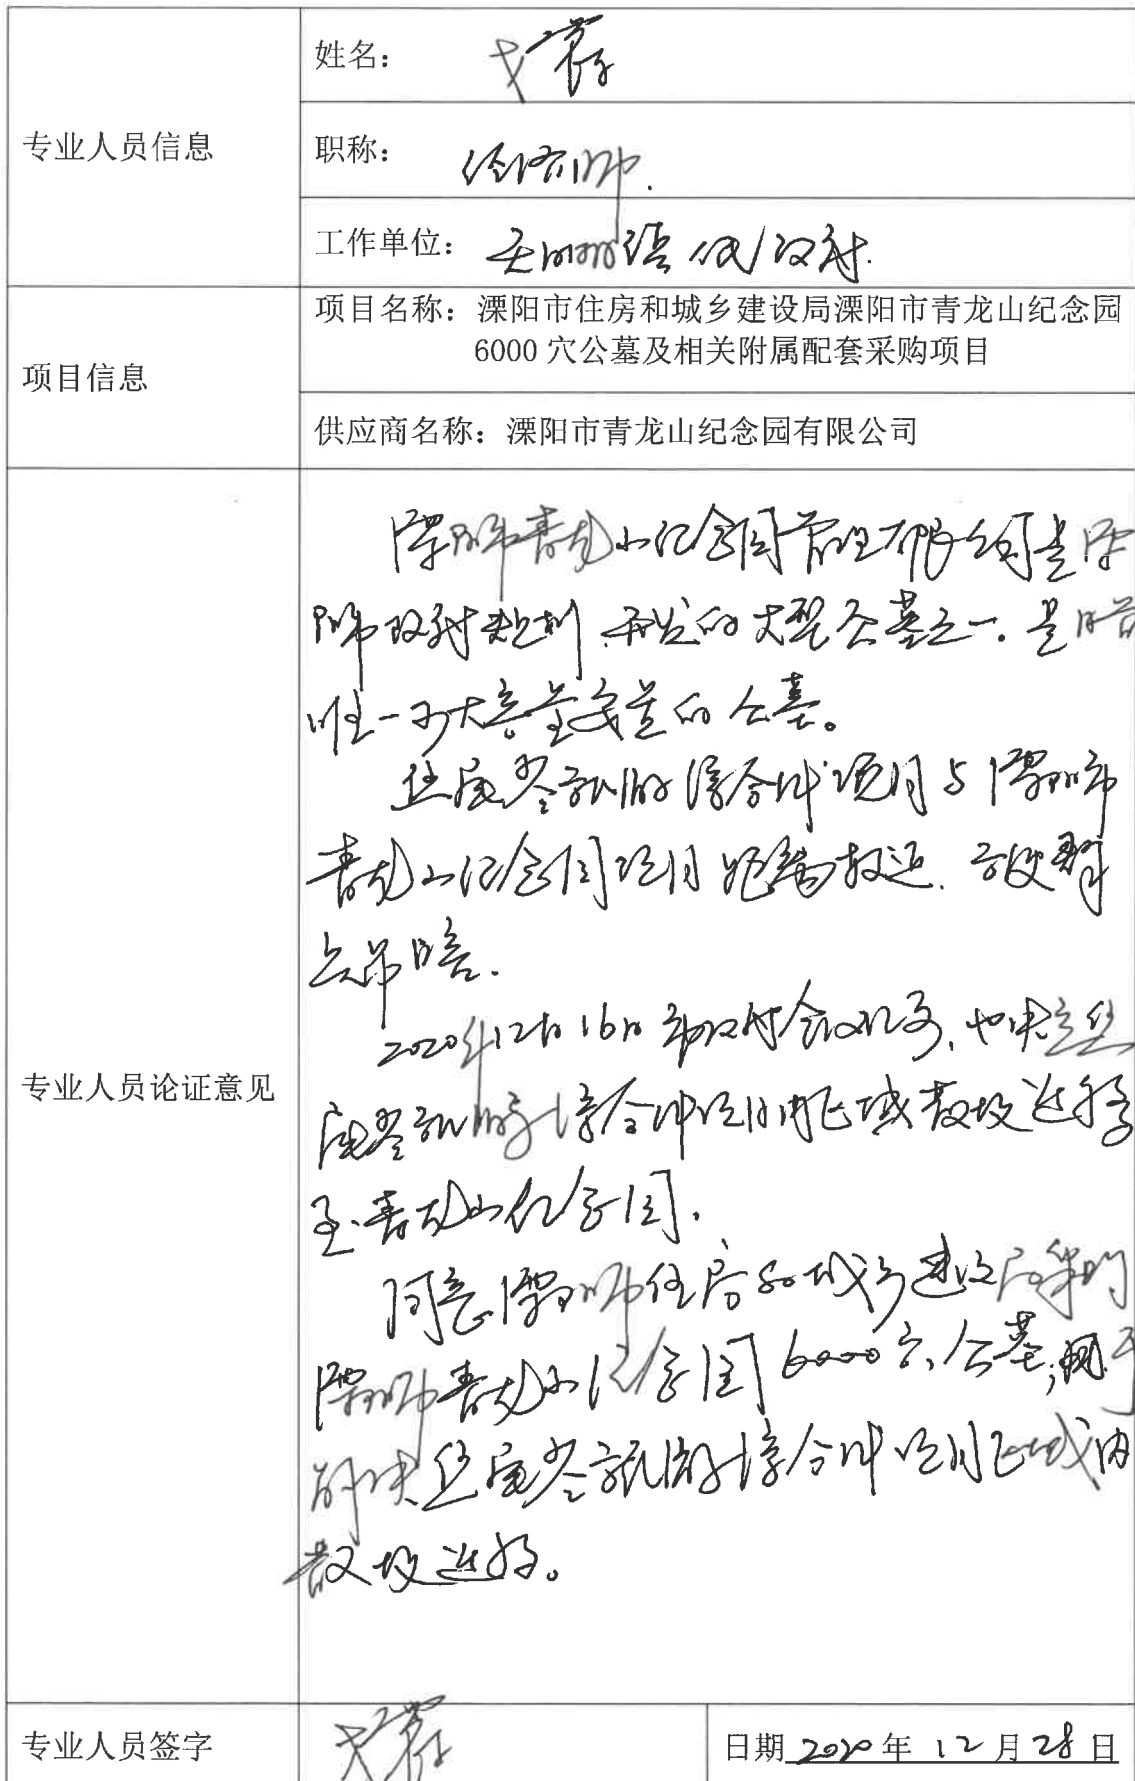 专业人员信息
姓名：
职称：经济师.
工作单位：天目湖镇人民政府.
项目信息
项目名称：溧阳市住房和城乡建设局溧阳市青龙山纪念园
6000 穴公墓及相关附属配套采购项目
供应商名称：溧阳市青龙山纪念园有限公司
专业人员论证意见
溧阳市青龙山纪念园管理有限公司是溧
阳市政府规划、开发的大型公墓之一。是目前
唯一可大容量安置的公墓。
项目与溧阳市
青龙山纪念园项目距离较近.方便群
众吊唁.
2020年12月16日市政府会议纪要,也决定
项目内区域散坟迁移
至青龙山纪念园.
同意溧阳市住房和城乡建设局采购
溧阳市青龙山纪念园6000穴公墓,用于
解决 项目区域内
散坟迁移。
专业人员签字
日期 2020 年 12 月 28 日